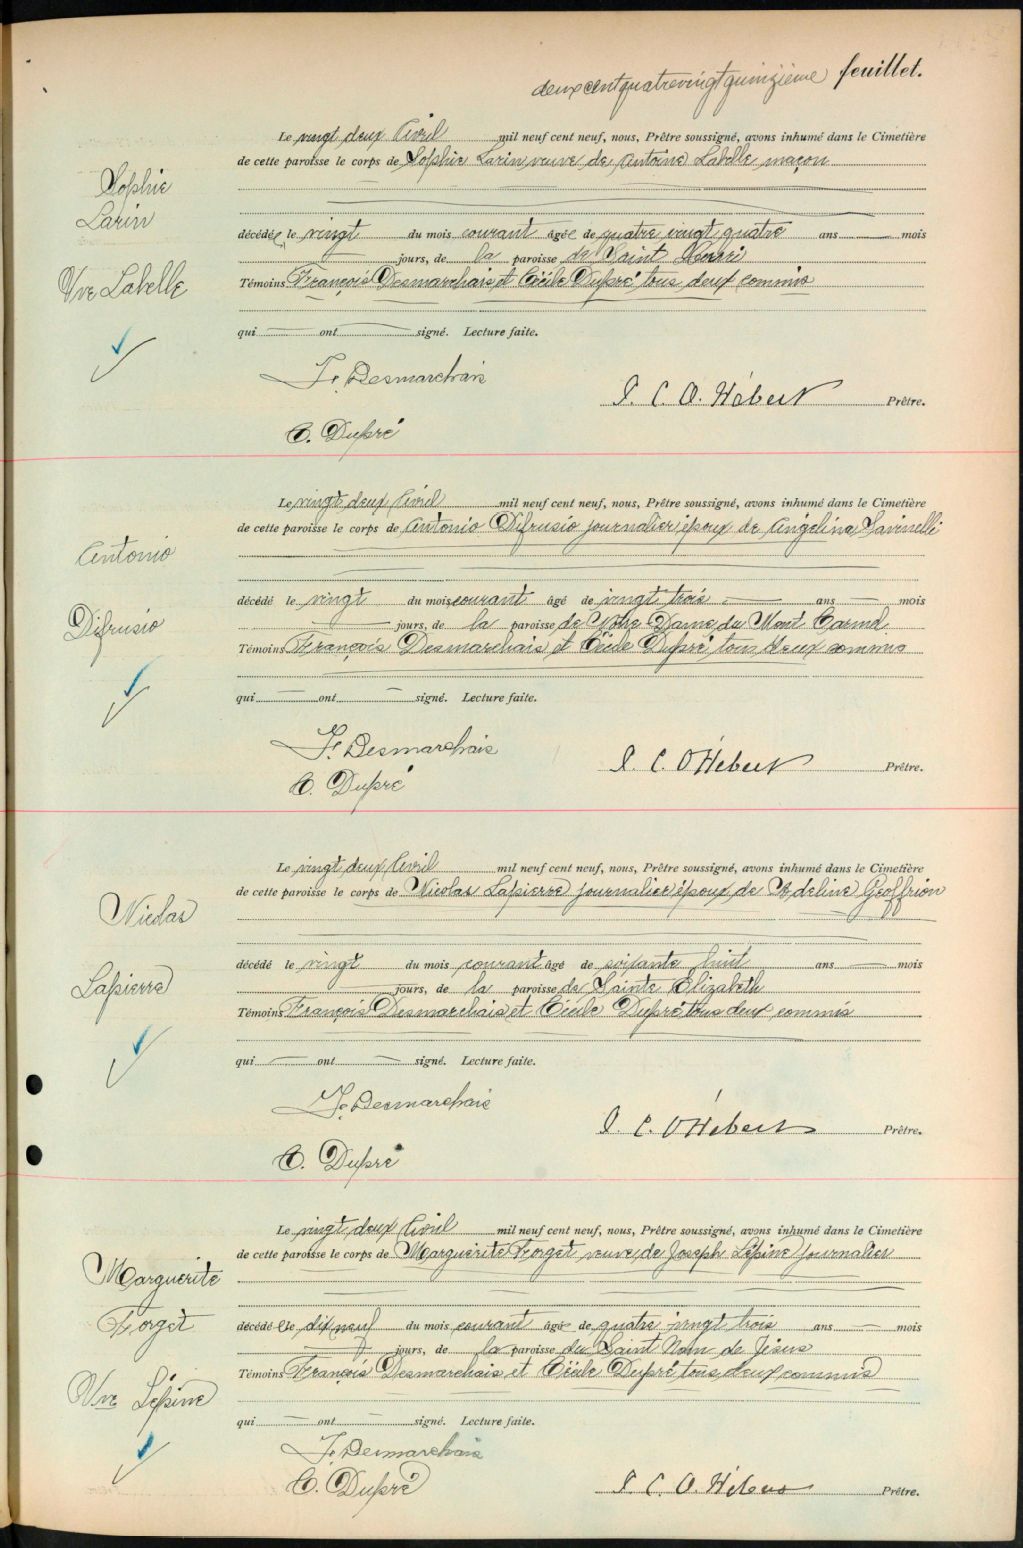 deux cent quatre vingt quinzième feuillet.
Le vingt deux Avril mil neuf cent neuf, nous, Prêtre soussigné, avons inhumé dans le Cimetière
de cette paroisse le corps de Sophie Larin veuve de Antoine Labelle maçon
Sophie
Larin
décédée le vingt du mois courant âgée de quatre vingt quatre ans mois
jours, de la paroisse de Saint Henri
Vve Labelle
Témoins François Desmarchais et Cécile Dupré tous deux commis
qui ont signé. Lecture faite.
F. Desmarchais
P. C. O. Hébert Prêtre.
C. Dupré
Le vingt deux Avril mil neuf cent neuf, nous, Prêtre soussigné, avons inhumé dans le Cimetière
de cette paroisse le corps de Antonio Difrusio journalier époux de Angelina Savinelli
Antonio
décédé le vingt du mois courant âgé de vingt trois ans mois
Difrusio
jours, de la paroisse de Notre Dame du Mont Carmel
Témoins François Desmarchais et Cécile Dupré tous deux commis
qui ont signé. Lecture faite.
F. Desmarchais
P. C. O Hébert Prêtre.
C. Dupré
Le vingt deux Avril mil neuf cent neuf, nous, Prêtre soussigné, avons inhumé dans le Cimetière
de cette paroisse le corps de Nicolas Lapierre journalier époux de Adeline Geoffrion
Nicolas
décédé le vingt du mois courant âgé de soixante huit ans mois
Lapierre
jours, de la paroisse de Sainte Elizabeth
Témoins François Desmarchais et Cécile Dupré tous deux commis
qui ont signé. Lecture faite.
F. Desmarchais
P. C. O Hébert Prêtre.
C. Dupré
Le vingt deux Avril mil neuf cent neuf, nous, Prêtre soussigné, avons inhumé dans le Cimetière
de cette paroisse le corps de Marguerite Forget veuve de Joseph Lépine journalier
Marguerite
Forget
décédée le dix neuf du mois courant âgée de quatre vingt trois ans mois
jours, de la paroisse du Saint Nom de Jésus
Témoins François Desmarchais et Cécile Dupré tous deux commis
Vve Lépine
qui ont signé. Lecture faite.
F. Desmarchais
C. Dupré
P. C. O. Hébert Prêtre.